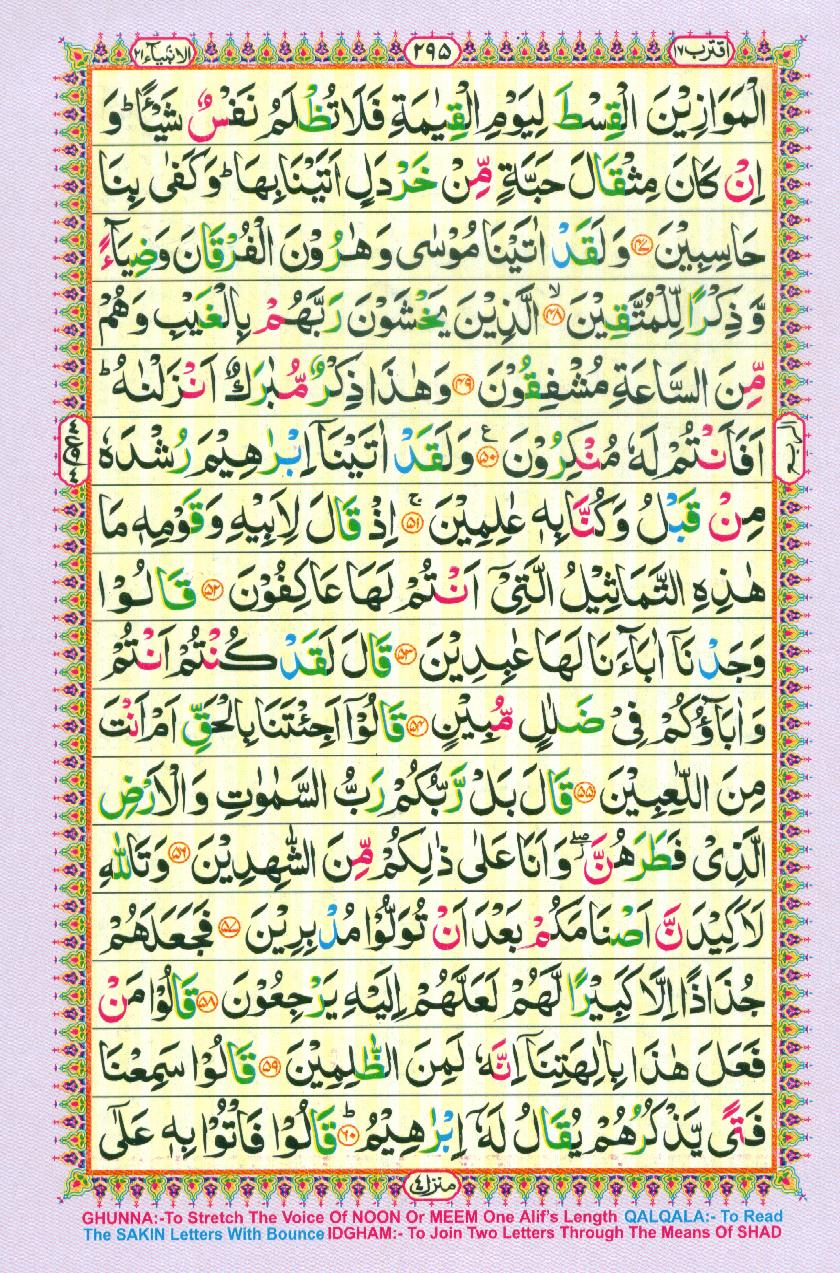 اقترب ١٧
٢٩٥
الانبیآء ٢١
الْمَوَازِیْنَ الْقِسْطَ لِیَوْمِ الْقِیٰمَةِ فَلَا تُظْلَمُ نَفْسٌ شَیْـًٔا ؕ وَ
اِنْ كَانَ مِثْقَالَ حَبَّةٍ مِّنْ خَرْدَلٍ اَتَیْنَا بِهَا ؕ وَ كَفٰی بِنَا
حَاسِبِیْنَ ﴿۴۷﴾ وَ لَقَدْ اٰتَیْنَا مُوْسٰی وَ هٰرُوْنَ الْفُرْقَانَ وَ ضِیَآءً
وَّ ذِكْرًا لِّلْمُتَّقِیْنَ ﴿ۙ۴۸﴾ الَّذِیْنَ یَخْشَوْنَ رَبَّهُمْ بِالْغَیْبِ وَ هُمْ
مِّنَ السَّاعَةِ مُشْفِقُوْنَ ﴿۴۹﴾ وَ هٰذَا ذِكْرٌ مُّبٰرَكٌ اَنْزَلْنٰهُ ؕ
اَفَاَنْتُمْ لَهٗ مُنْكِرُوْنَ ﴿۵۰﴾ ع وَ لَقَدْ اٰتَیْنَاۤ اِبْرٰهِیْمَ رُشْدَهٗ
مِنْ قَبْلُ وَ كُنَّا بِهٖ عٰلِمِیْنَ ﴿ۚ۵۱﴾ اِذْ قَالَ لِاَبِیْهِ وَ قَوْمِهٖ مَا
هٰذِهِ التَّمَاثِیْلُ الَّتِیْۤ اَنْتُمْ لَهَا عَاكِفُوْنَ ﴿۵۲﴾ قَالُوْا
وَجَدْنَاۤ اٰبَآءَنَا لَهَا عٰبِدِیْنَ ﴿۵۳﴾ قَالَ لَقَدْ كُنْتُمْ اَنْتُمْ
وَ اٰبَآؤُكُمْ فِیْ ضَلٰلٍ مُّبِیْنٍ ﴿۵۴﴾ قَالُوْۤا اَجِئْتَنَا بِالْحَقِّ اَمْ اَنْتَ
مِنَ اللّٰعِبِیْنَ ﴿۵۵﴾ قَالَ بَلْ رَّبُّكُمْ رَبُّ السَّمٰوٰتِ وَ الْاَرْضِ
الَّذِیْ فَطَرَهُنَّ ۖ وَ اَنَا عَلٰی ذٰلِكُمْ مِّنَ الشّٰهِدِیْنَ ﴿۵۶﴾ وَ تَاللّٰهِ
لَاَكِیْدَنَّ اَصْنَامَكُمْ بَعْدَ اَنْ تُوَلُّوْا مُدْبِرِیْنَ ﴿۵۷﴾ فَجَعَلَهُمْ
جُذٰذًا اِلَّا كَبِیْرًا لَّهُمْ لَعَلَّهُمْ اِلَیْهِ یَرْجِعُوْنَ ﴿۵۸﴾ قَالُوْا مَنْ
فَعَلَ هٰذَا بِاٰلِهَتِنَاۤ اِنَّهٗ لَمِنَ الظّٰلِمِیْنَ ﴿۵۹﴾ قَالُوْا سَمِعْنَا
فَتًی یَّذْكُرُهُمْ یُقَالُ لَهٗۤ اِبْرٰهِیْمُ ﴿ؕ۶۰﴾ قَالُوْا فَاْتُوْا بِهٖ عَلٰۤی
منزل ٤
GHUNNA:-To Stretch The Voice Of NOON Or MEEM One Alif's Length QALQALA:- To Read
The SAKIN Letters With Bounce IDGHAM:- To Join Two Letters Through The Means Of SHAD